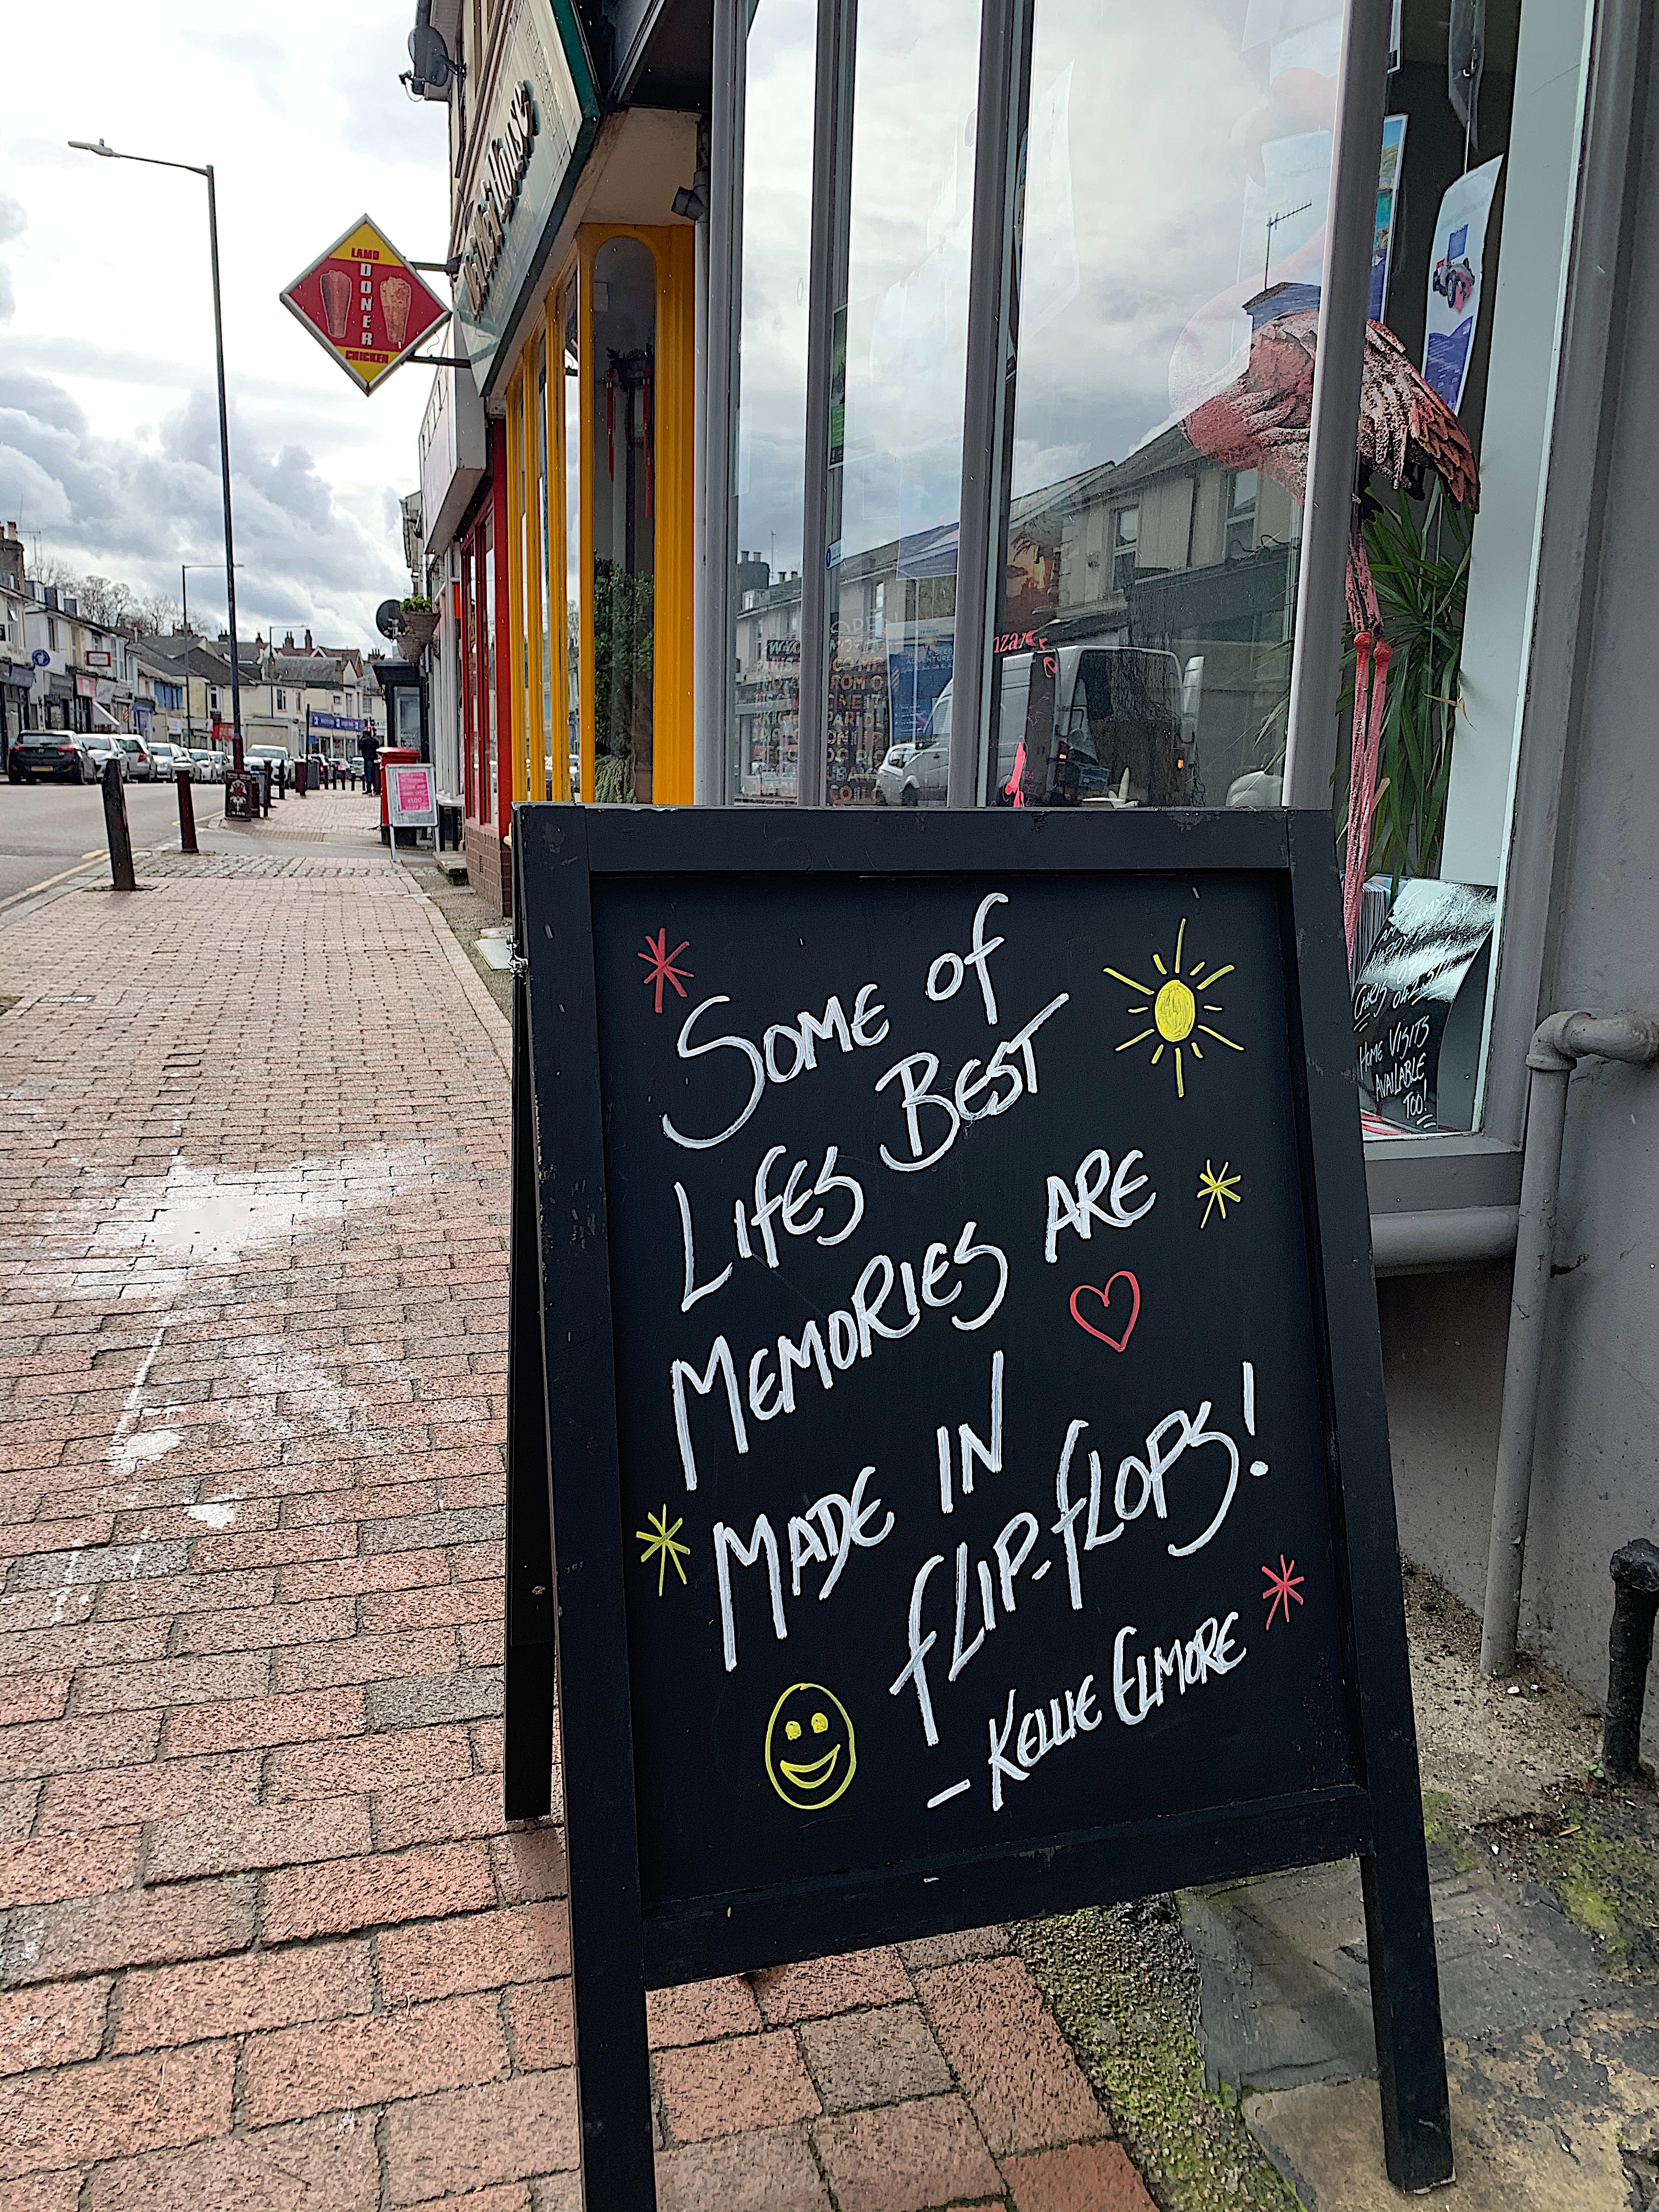 LAMB
DONER
CHICKEN
SOME of
LIFES BEST
MEMORIES ARE
MADE IN
fLIP-fLOPS!
- KELLIE ELMORE
HOME VISITS
AVAILABLE
TOO!